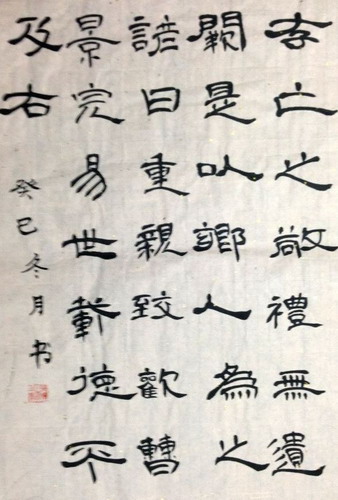 存亡之敬禮無遺
闕是以鄉人為之
諺曰重親致歡曹
景完易世載德不
及右
癸巳冬月书